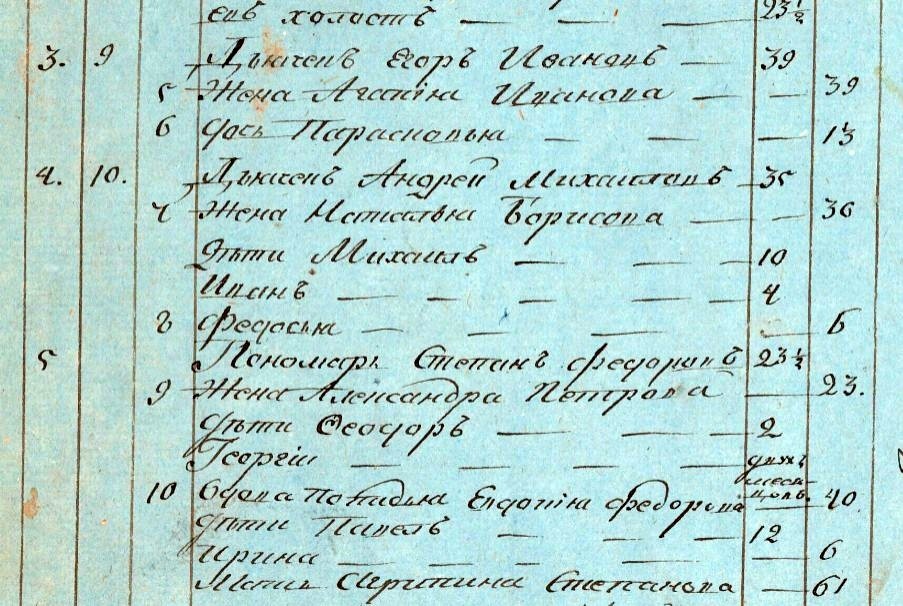 евъ холостъ — — — 23½
3. 9 Дьячекъ Егоръ Ивановъ — 39
5 Жена Агапія Иванова — — 39
6 дочь Парасковья — — — 1⅓
4. 10. Дьячекъ Андрей Михаиловъ — 35
7 Жена Наталья Борисова — — 36
дѣти Михаилъ — — — 10
Иванъ — — — — 4
8 Федосья — — — — 6
5 Пономарь Степанъ Федоровъ 23½
9 Жена Александра Петрова — 23.
дѣти Ѳеодоръ — — — 2
Георгіи — — — — двухъ месяцовъ.
10 вдова Попадья Евдокія Федорова — 40
дѣти Павелъ — — — 12
Ирина — — — — — 6
Мать Агрипина Степанова — 61